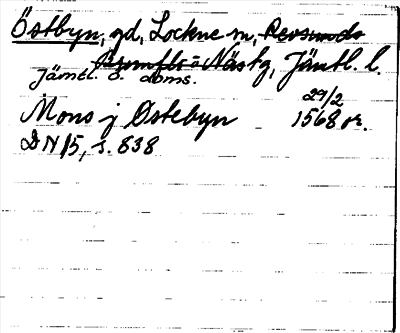 Östbyn, gd, Lockne sn, Revsunds
Brunflo o Näs tg, Jämtl. l.
Jämtl. ö. doms.
Mons j Østebyn 29/2 1568 or.
DN 15, s. 838